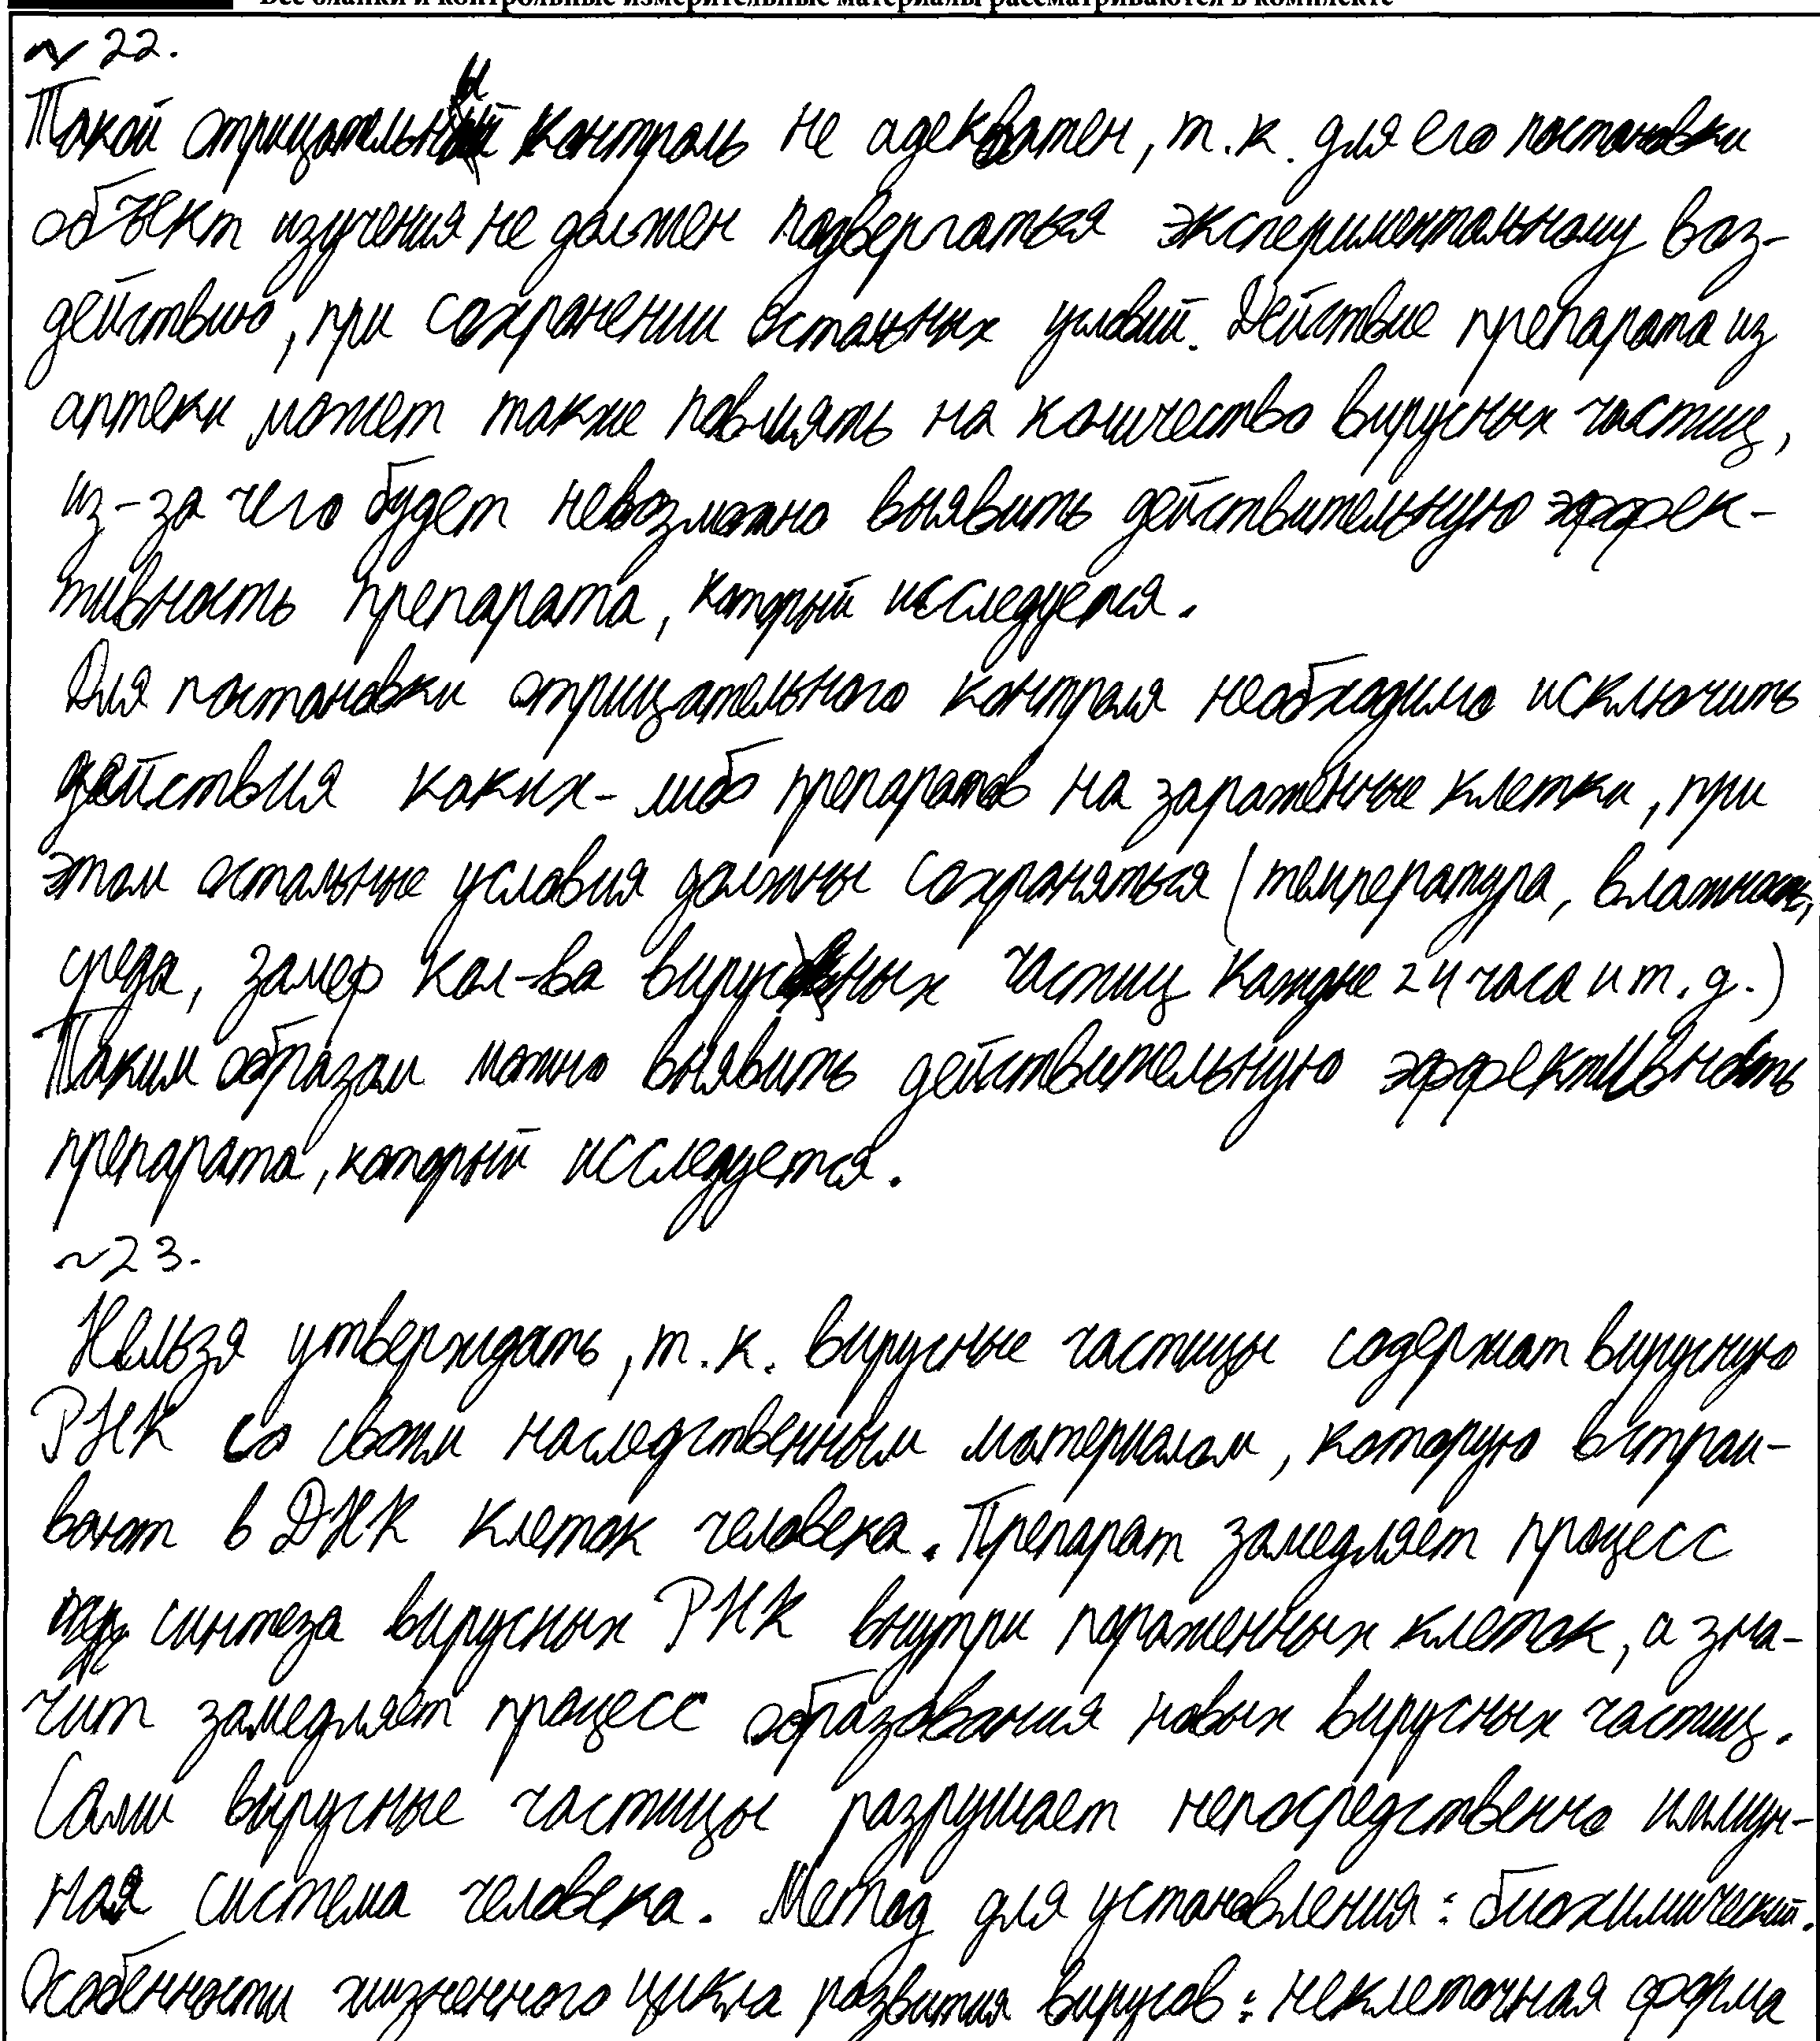 Все бланки и контрольные измерительные материалы рассматриваются в комплекте
№ 22.
Такой отрицательный контроль не адекватен, т.к. для его постановки
объект изучения не должен подвергаться экспериментальному воз-
действию, при сохранении остальных условий. Действие препарата из
аптеки может также повлиять на количество вирусных частиц,
из-за чего будет невозможно выявить действительную эффек-
тивность препарата, который исследуется.
Для постановки отрицательного контроля необходимо исключить
действия каких-либо препаратов на заражённые клетки, при
этом остальные условия должны сохраняться (температура, влажность,
среда, замер кол-ва вирусных частиц каждые 24 часа и т.д.)
Таким образом можно выявить действительную эффективность
препарата, который исследуется.
№ 23.
Нельзя утверждать, т.к. вирусные частицы содержат вирусную
РНК со своим наследственным материалом, которую встраи-
вают в ДНК клеток человека. Препарат замедляет процесс
синтеза вирусных РНК внутри поражённых клеток, а зна-
чит замедляет процесс образования новых вирусных частиц.
Сами вирусные частицы разрушает непосредственно иммун-
ная система человека. Метод для установления: биохимический.
Особенности жизненного цикла развития вирусов: неклеточная форма